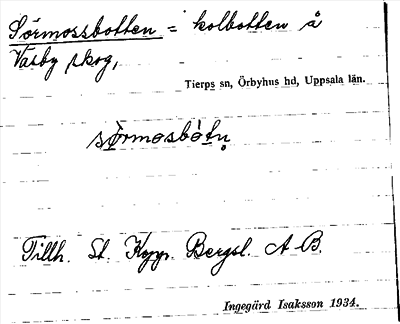 Sörmossbotten = kolbotten å
Vasby skog,
Tierps sn, Örbyhus hd, Uppsala län.
sö̀rmosbòtn̥
Tillh. St. Kopp. Bergsl. A B.
Ingegärd Isaksson 1934.